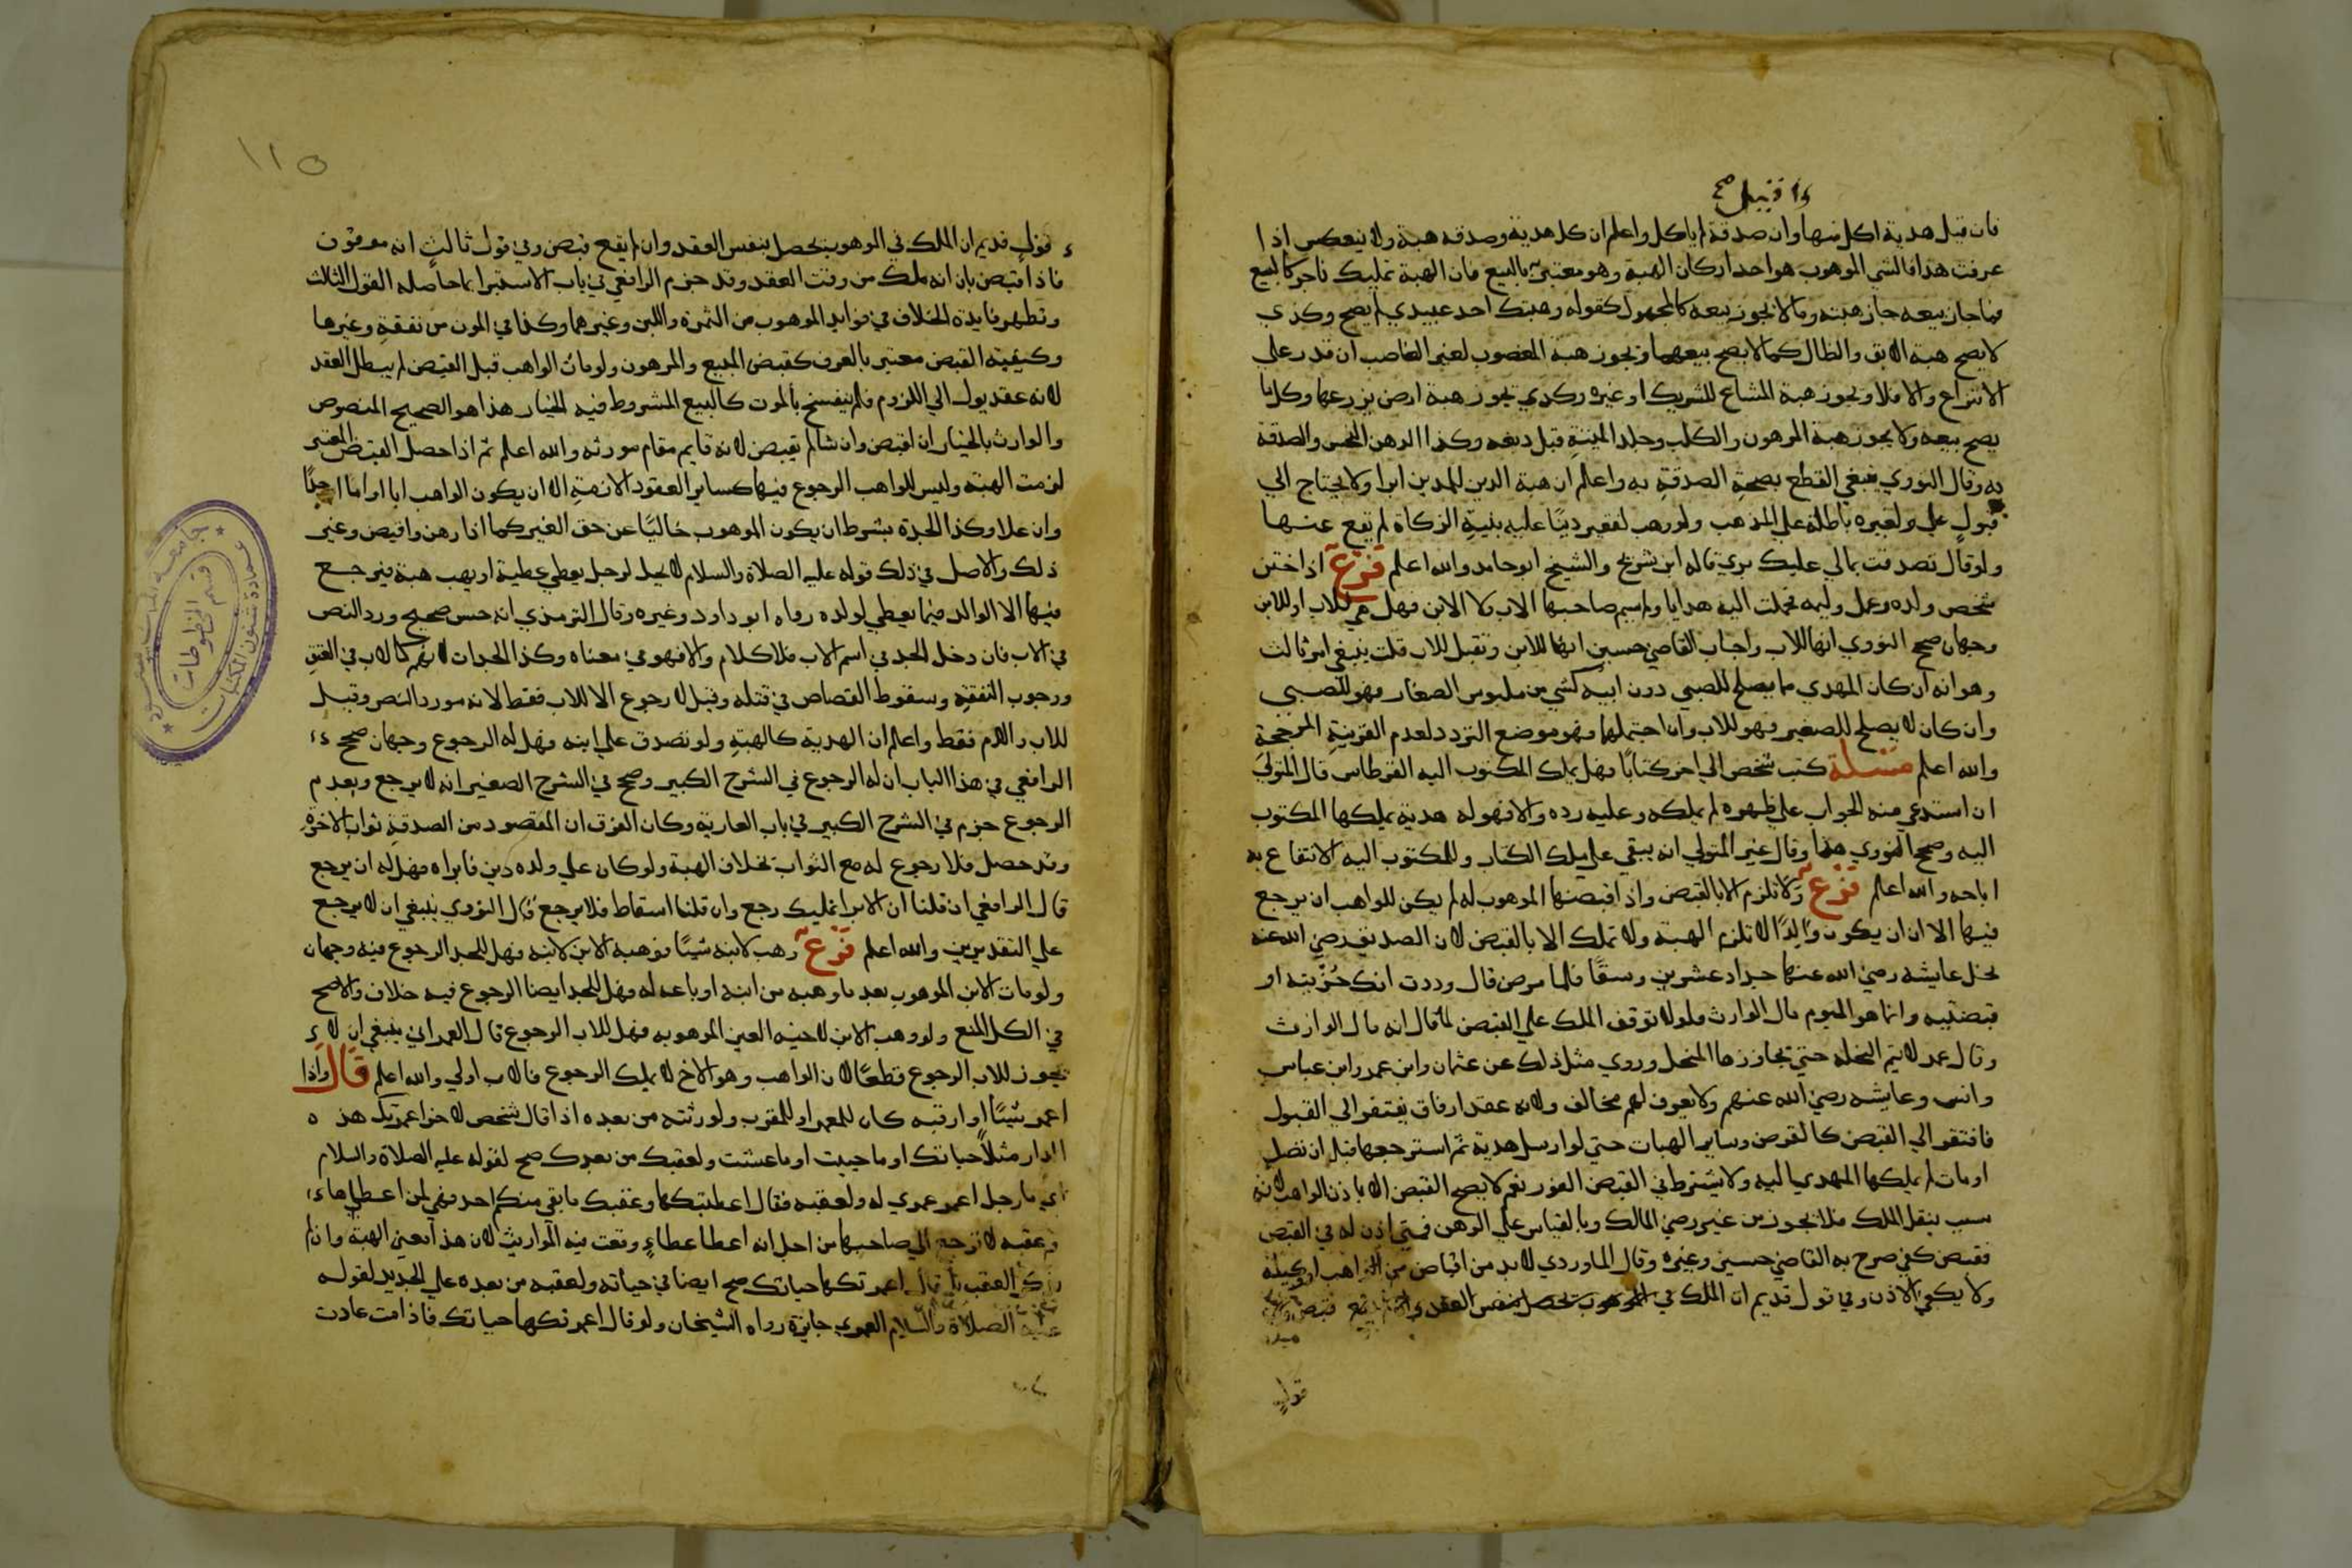 وان قبيل صح
فان قبل هدية اكل منها وان صدقة لم ياكل واعلم ان كل هدية وصدقه هبة ولا ينعكس اذا
عرفت هذا فالشي الموهوب هو احد اركان الهبة وهو معتبر بالبيع فان الهبة تمليك ناجز كالبيع
فما جاز بيعه جاز هبته وما لا يجوز بيعه كالمجهول كقوله وهبتك احد عبيدي لم يصح وكذي
لا يصح هبة الابق والظال كما لا يصح بيعهما وتجوز هبة المغصوب لغير الغاصب ان قدر علي
الانتزاع والا فلا وتجوز هبة المشاع للشريك او غيره وكذي تجوز هبة ارض يزرعها وكل ما
يصح بيعه ولا يجوز هبة المرهون والكلب وجلد الميتة قبل دبغه وكذا الدهن النجس والصدقة
به وقال النووي ينبغي القطع بصحة الصدقة به واعلم ان هبة الدين للمدين ابرا ولا يحتاج الي
قبول علي ولغيره باطلة علي المذهب ولو وهب لفقير دينًا عليه بنية الزكاة لم تقع عنها
ولو قال تصدقت بمالي عليك بري قاله ابن شريح والشيخ ابو حامد والله اعلم فرع اذا ختن
شخص ولده وعمل وليمه فحملت اليه هدايا ولم يسم صاحبها الاب ولا الابن فهل هي للاب او للابن
وجهان صحح النووي انها للاب واجاب القاضي حسين انها للابن وتقبل للاب قلت ينبغي امر ثالث
وهو انه ان كان المهدي مما يصلح للصبي دون ابيه كشي من ملبوس الصغار فهو للصبي
وان كان لا يصلح للصغير فهو للاب وان احتملهما فهو موضع التردد لعدم القرينة المرجحة
والله اعلم مسئلة كتب شخص الي اخر كتابًا فهل يملك المكتوب اليه القرطاس قال المتولي
ان استدعي منه الجواب علي ظهره لم يملكه وعليه رده والا فهو له هدية يملكها المكتوب
اليه وصحح النووي هذا وقال غير المتولي انه يبقي علي ملك الكتاب وللمكتوب اليه الانتفاع به
اباحه والله اعلم فرع ولا تلزم الا بالقبض واذا قبضها الموهوب له لم يكن للواهب ان يرجع
فيها الا ان يكون والدًا لا تلزم الهبة ولا تملك الا بالقبض لان الصديق رضي الله عنه
نحل عايشه رضي الله عنها جداد عشرين وسقًا فلما مرض قال وددت انك حُزتيه او
قبضتيه وانما هو اليوم مال الوارث فلولا توقف الملك علي القبض لما قال انه مال الوارث
وقال عمر لا تتم النحلة حتي يحاوزها المنحل وروي مثل ذلك عن عثمان وابن عمر وابن عباس
وانس وعايشه رضي الله عنهم ولا يعرف لهم مخالف ولانه عقد ارفاق يفتقر الي القبول
فافتقر الي القبض كالقرض وساير الهبات حتي لو ارسل هدية ثم استرجعها قبل ان تصل
او مات لم يملكها المهدي اليه ولا يشترط في القبض الفور نعم لا يصح القبض الا باذن الواهب لانه
سبب ينقل الملك فلا يجوز من غير رضي المالك وبالقياس علي الرهن فمتي اذن له في القبض
فقبض كفي صرح به القاضي حسين وغيره وقال الماوردي لا بد من اقباض من الواهب او وكيله
ولا يكفي الاذن وفي قول قديم ان الملك في الموهوب تحصل بنفس العقد وان لم يقع قبض
قول
١١٥
قول قديم ان الملك في الموهوب تحصل بنفس العقد وان لم يقع قبض وفي قول ثالث انه موقوف
فاذا قبض بان انه ملك من وقت العقد وقد جزم الرافعي في باب الاستبرا بما حاصله القول الثالث
وتظهر فايدة الخلاف في فوايد الموهوب من الثمرة واللبن وغيرهما وكذا في المون من نفقة وغيرها
وكيفية القبض معتبر بالعرف كقبض المبيع والمرهون ولو مات الواهب قبل القبض لم يبطل العقد
لانه عقد يول الي اللزوم فلم ينفسخ بالموت كالبيع المشروط فيه الخيار هذا هو الصحيح المنصوص
والوارث بالخيار ان اقبض وان شا لم يقبض لانه قايم مقام مورثه والله اعلم ثم اذا حصل القبض المعتبر
لزمت الهبة وليس للواهب الرجوع فيها كساير العقود الازمة الا ان يكون الواهب ابا او اما او جدًا
وان علا وكذا الجدة بشرط ان يكون الموهوب خاليًا عن حق الغير كما اذا رهن واقبض وغير
ذلك والاصل في ذلك قوله عليه الصلاة والسلام لا يحل لرجل يعطي عطية او يهب هبة فيرجع
فيها الا الوالد فيما يعطي لولده رواه ابو داود وغيره وقال الترمذي انه حسن صحيح ورد النص
في الاب فان دخل الجد في اسم الاب فلا كلام والا فهو في معناه وكذا الجدات لانهم كالاب في العتق
ووجوب النفقة وسقوط القصاص في قتله وقيل لا رجوع الا للاب فقط لانه مورد النص وقيل
للاب والام فقط واعلم ان الهدية كالهبة ولو تصدق علي ابنه فهل له الرجوع وجهان صحح
الرافعي في هذا الباب ان له الرجوع في الشرح الكبير وصحح في الشرح الصغير انه لا يرجع وبعدم
الرجوع جزم في الشرح الكبير في باب العارية وكان الفرق ان المقصود من الصدقة ثواب الاخرة
وقد حصل فلا رجوع له مع الثواب بخلاف الهبة ولو كان علي ولده دين فابراه فهل له ان يرجع
قال الرافعي ان قلنا ان الابرا تمليك رجع وان قلنا اسقاط فلا يرجع قال النووي ينبغي ان لا يرجع
علي التقديرين والله اعلم فرع وهب لابنه شيئًا فوهبه الابن لابنه فهل للجد الرجوع فيه وجهان
ولو مات الابن الموهوب بعد ما وهبه من ابنه او باعه له فهل للجد ايضا الرجوع فيه خلاف والاصح
في الكل المنع ولو وهب الابن لاخيه العين الموهوبه فهل للاب الرجوع قال العمراني ينبغي ان لا
يجوز للاب الرجوع قطعًا لان الواهب وهو الاخ لا يملك الرجوع فالاب اولي والله اعلم قال واذا
اعمر شيئًا او ارقبه كان للمعمر او للمقرب ولورثته من بعده اذا قال شخص لاخر اعمرتك هذه
الدار مثلًا حياتك او ما حييت او ما عشت ولعقبك من بعدك صح لقوله عليه الصلاة والسلام
اي ما رجل اعمر عمري له ولعقبه فقال اعطيتكها وعقبك ما بقي منكم احد فهي لمن اعطيها
وعقبه لا ترجع الي صاحبها من اجل انه اعطا عطاءٍ وقعت فيه المواريث لان هذا معني الهبة وان لم
يذكر العقب بل قال اعمرتكها حياتك صح ايضا في حياته ولعقبه من بعده علي الجديد لقوله
عليه الصلاة والسلام العمري جايزة رواه الشيخان ولو قال اعمرتكها حياتك فاذا مت عادت
قسم المخطوطات
عمادة شئون المكتبات